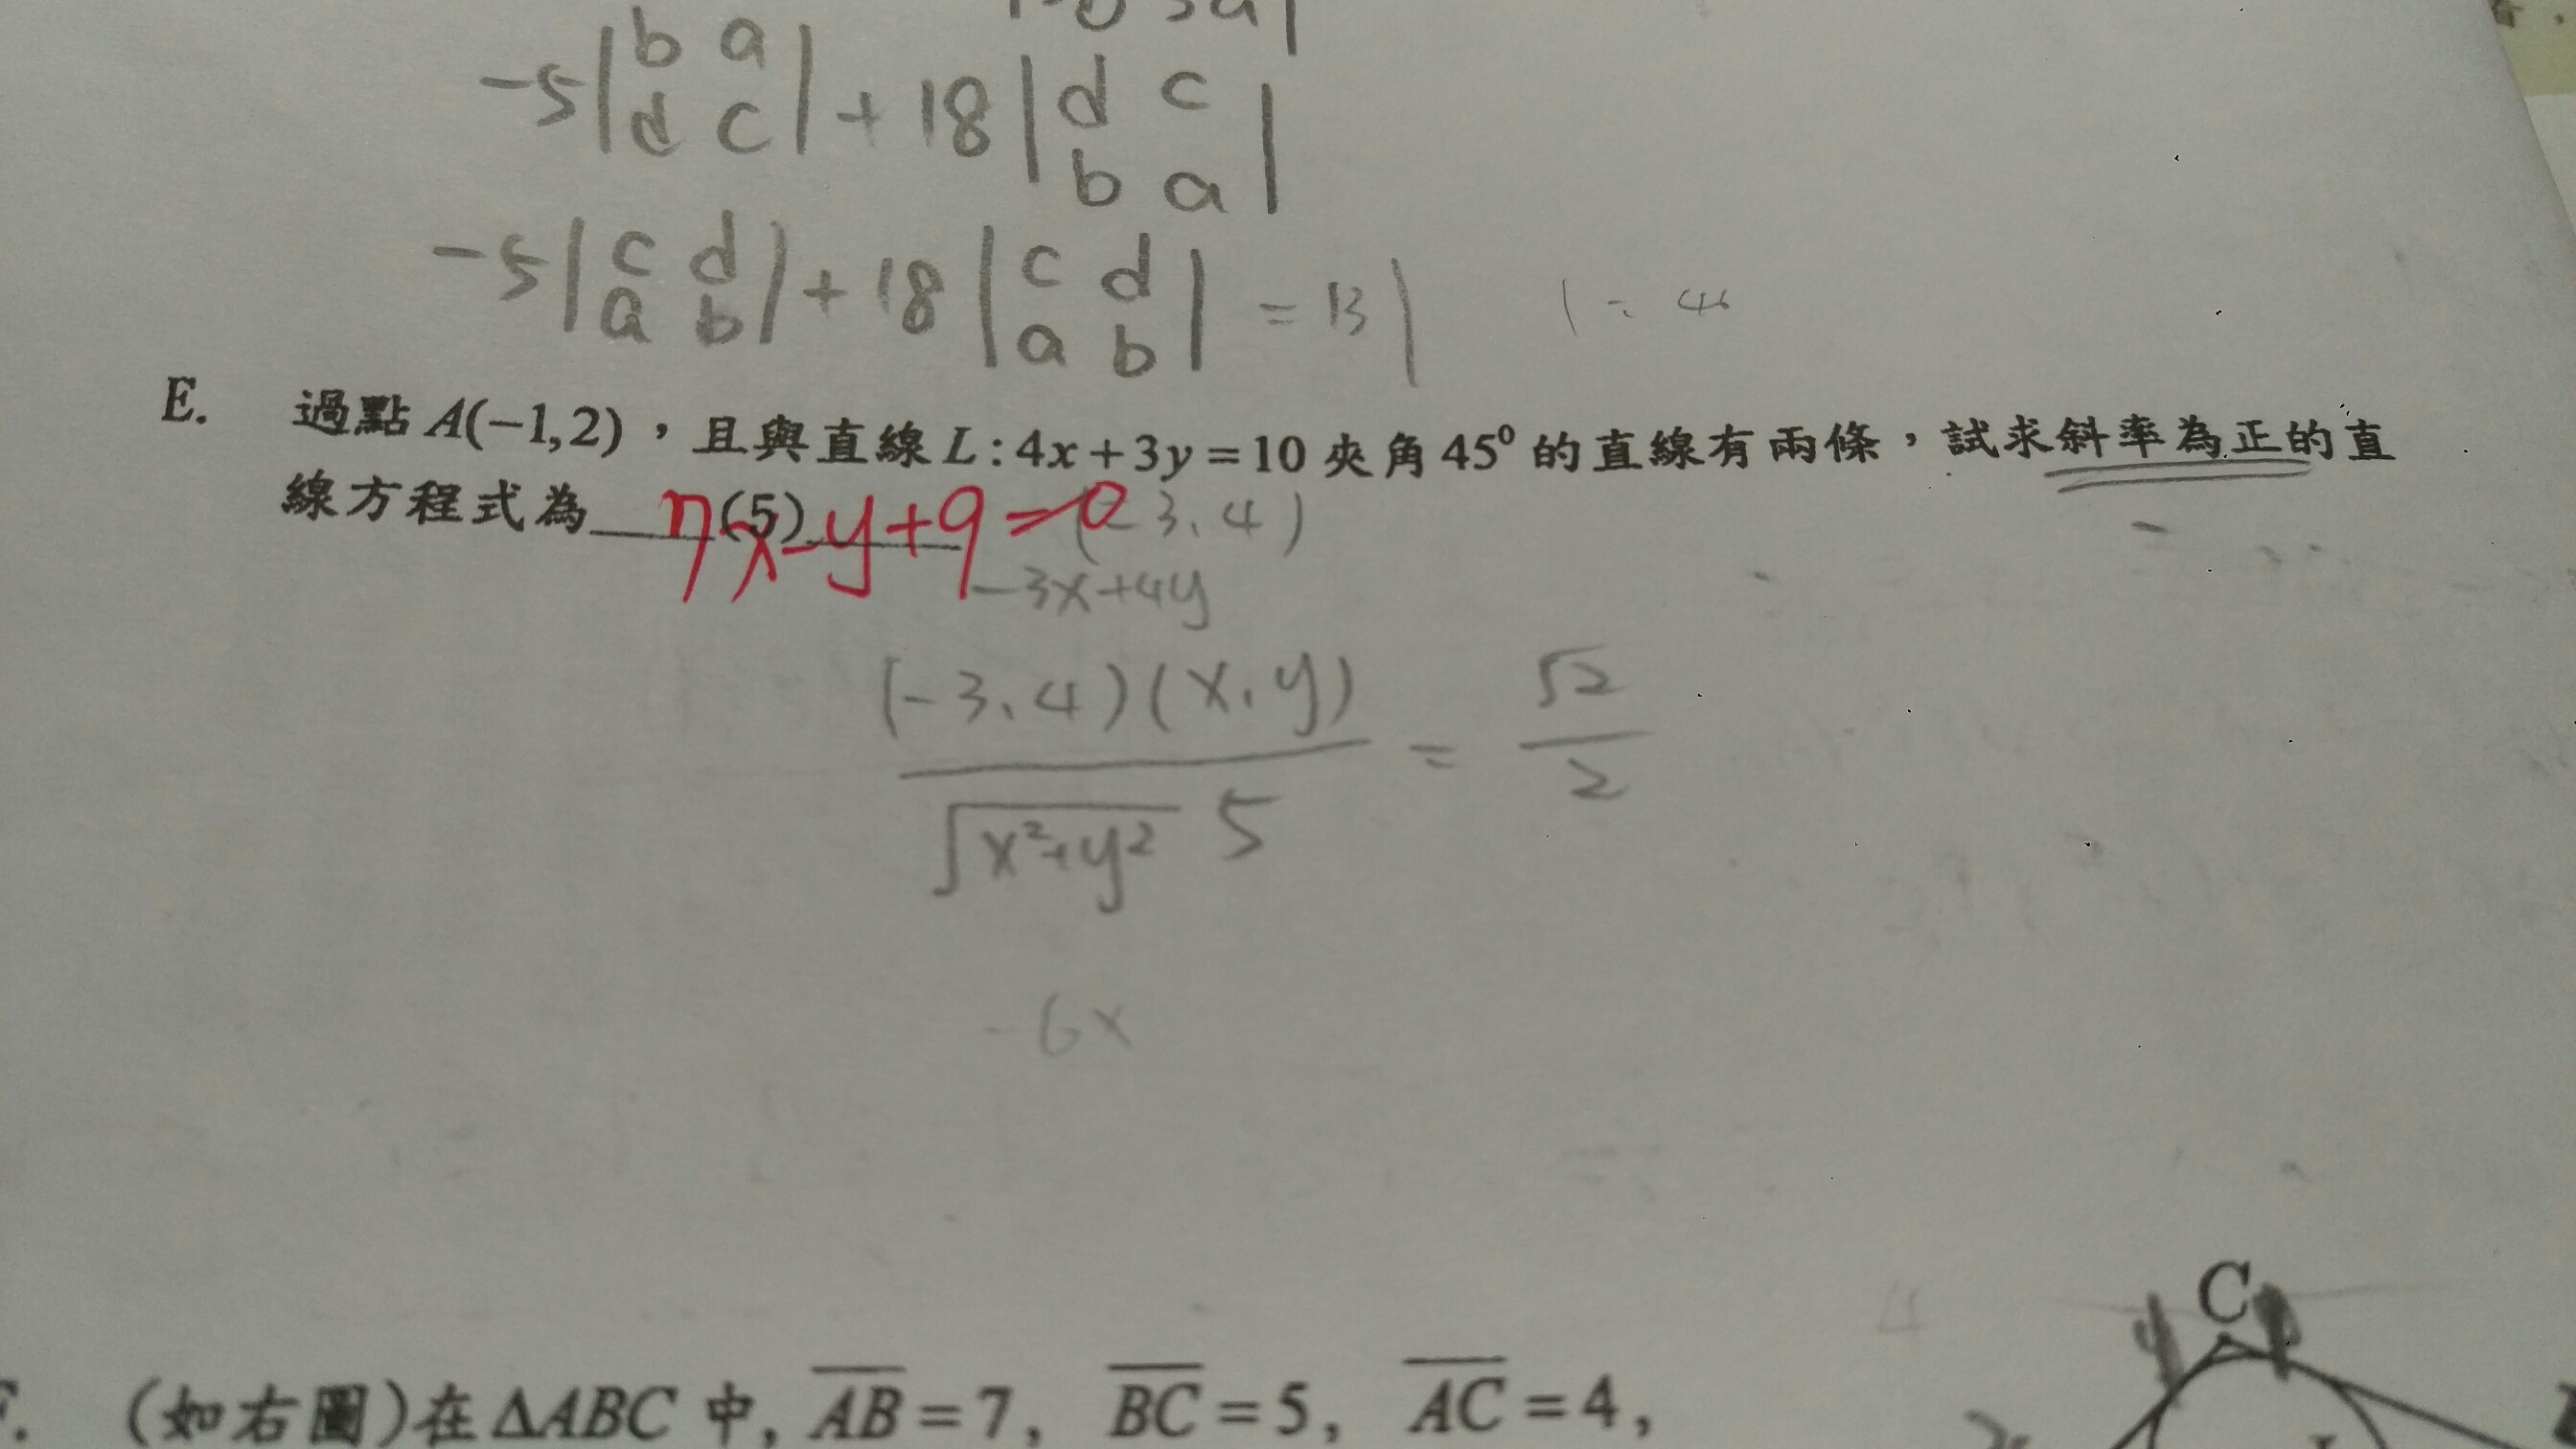 -5|b a| + 18|d c|
|d c| |b a|
-5|c d| + 18|c d| = 13|
|a b| |a b|
E. 過點 A(−1,2),且與直線 L : 4x + 3y = 10 夾角 45⁰ 的直線有兩條,試求斜率為正的直
線方程式為 (5)
7x-y+9=0
(-3, 4)
-3x+4y
(-3, 4)(x, y)
√x²+y² 5
= √2
2
-6x
C
(如右圖)在 ΔABC 中, AB = 7, BC = 5, AC = 4,